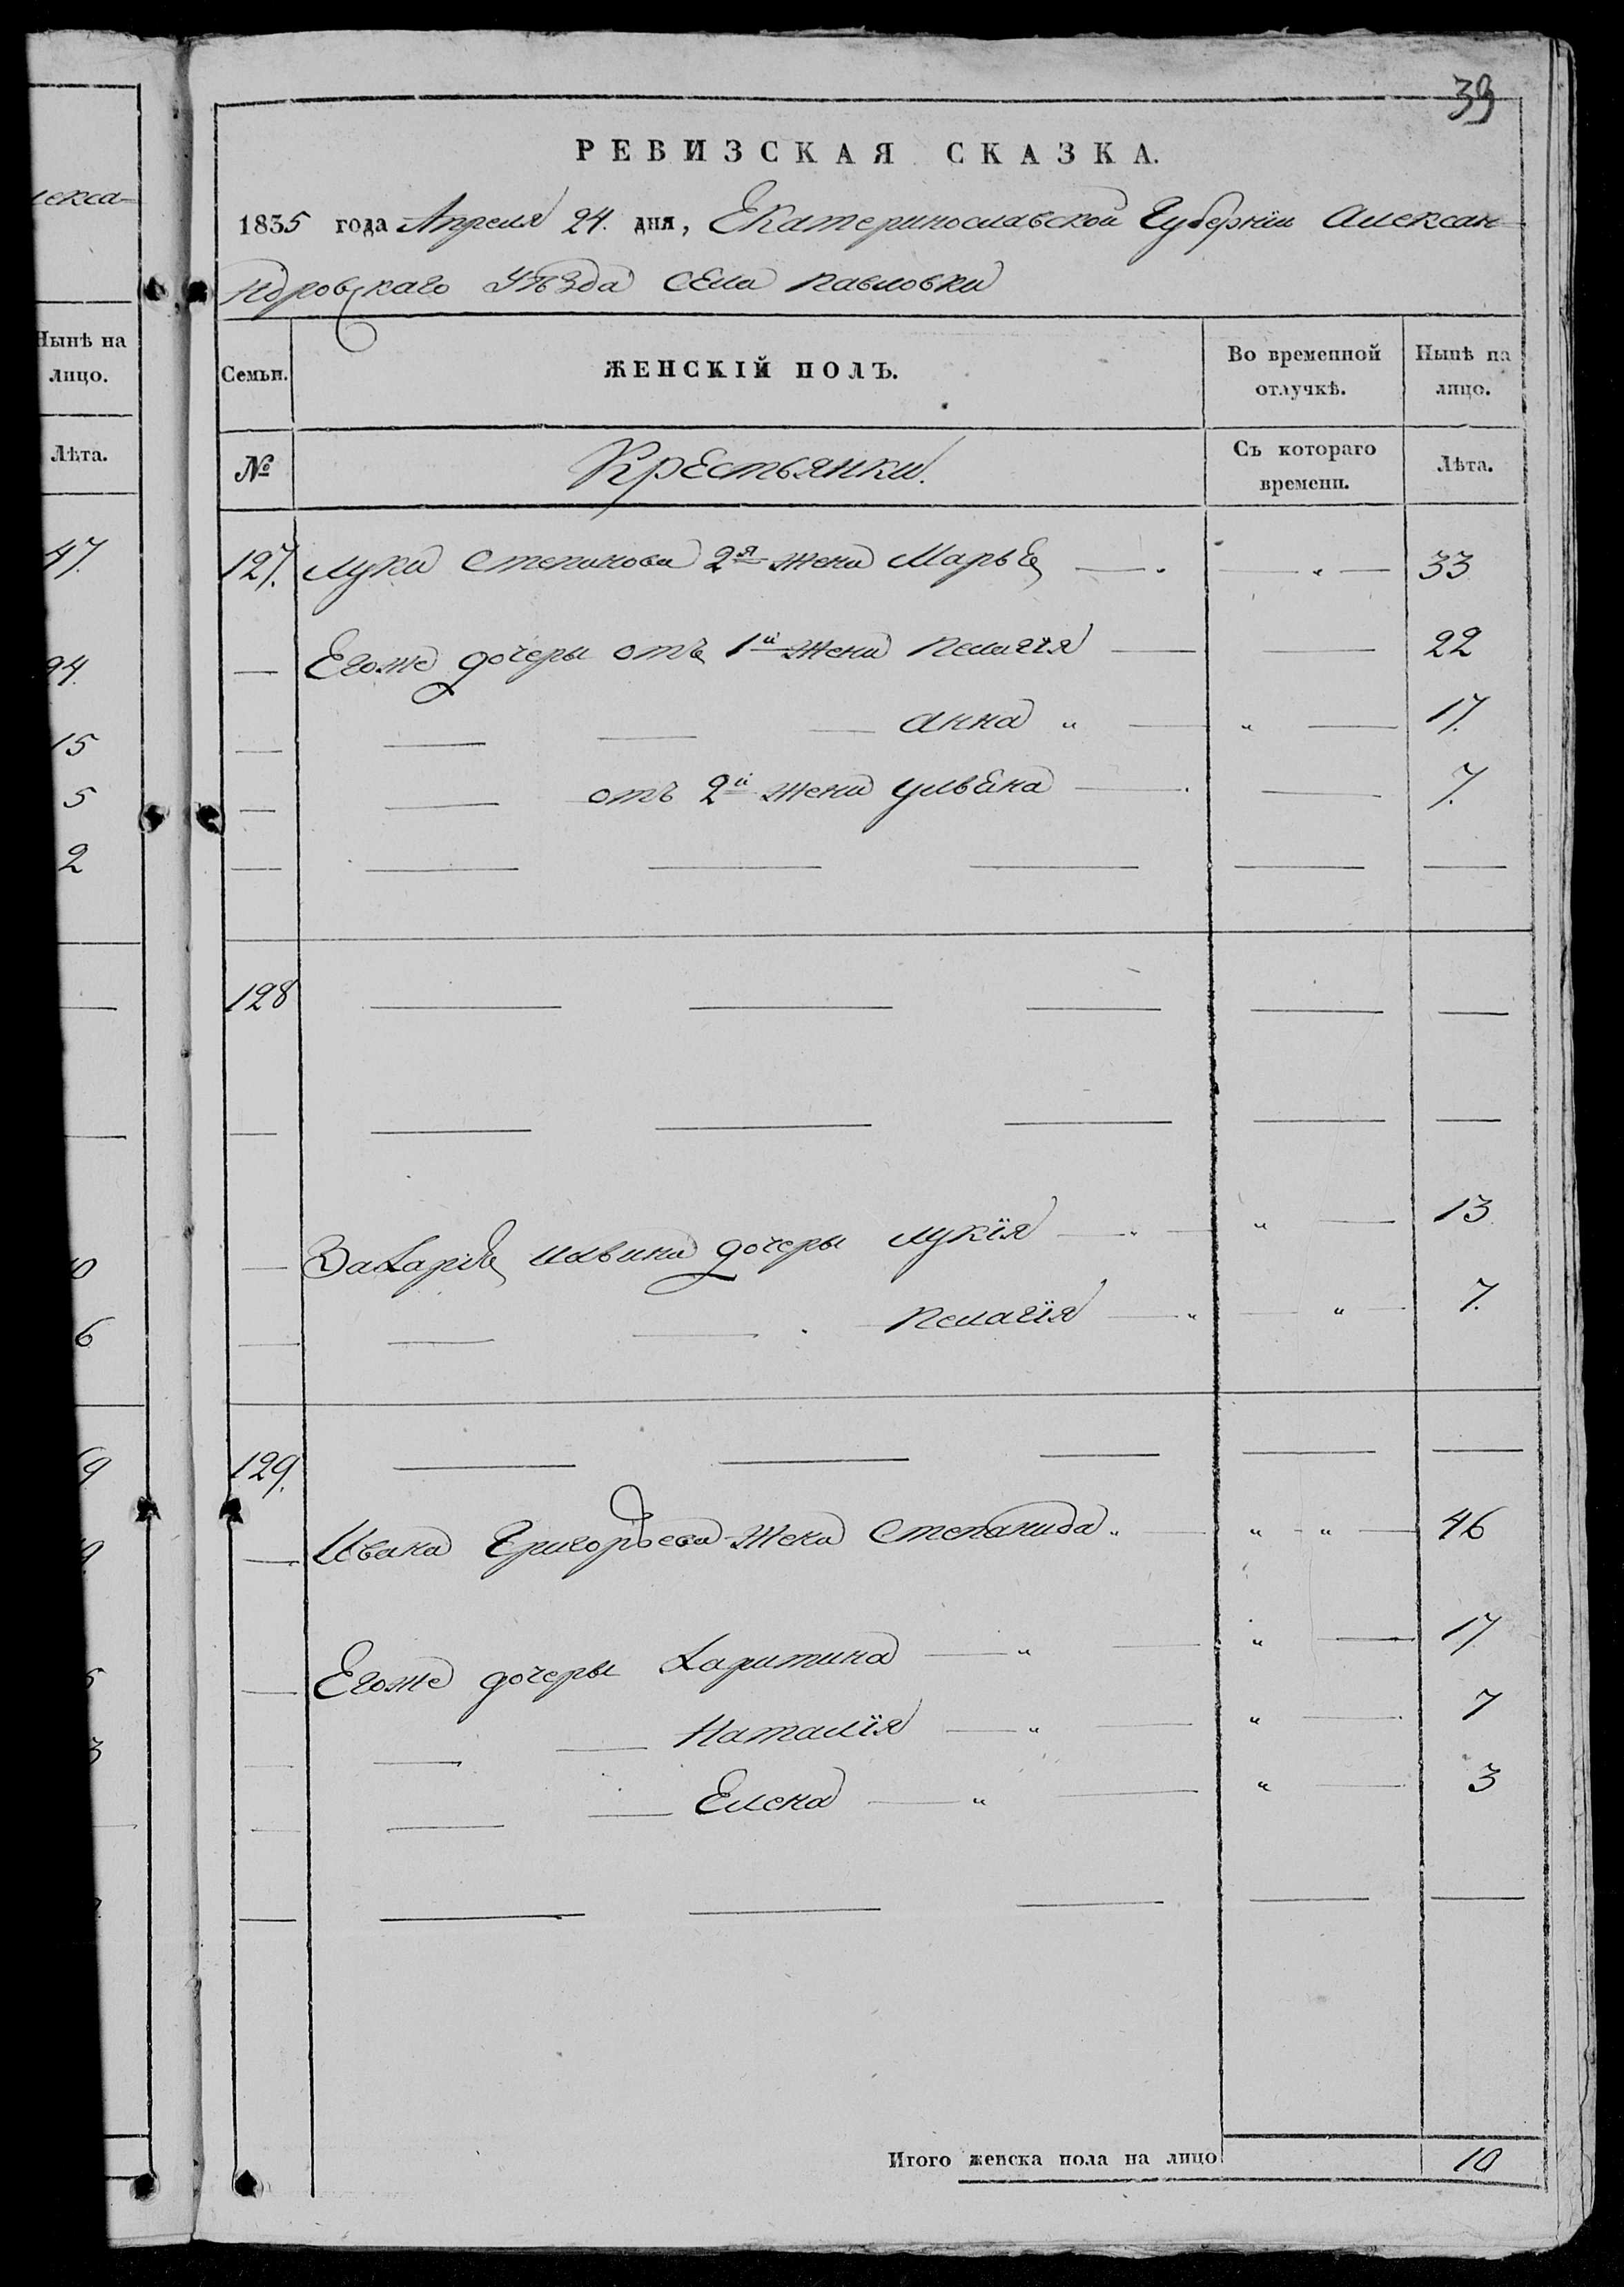 39
РЕВИЗСКАЯ СКАЗКА.
1835 года Апреля 24. дня, Екатеринославской Губернїи Алексан-
ндровскаго Уѣзда села Павловки
Семьи. ЖЕНСКІЙ ПОЛЪ. Во временной отлучкѣ. Нынѣ на лицо.
№ Крестьянки. Съ котораго времени. Лѣта.
127. Луки Степанова 2я жена Марья 33
Егоже дочеры отъ 1й жены Пелагея 22
Анна " " 17.
отъ 2й жены Ульяна 7.
128
Захарія дочеры Лукїя " " 13
Пелагїя " " 7.
129.
Ивана Григорьева жена Степанида " " " 46
Егоже дочеры Харитина " " 17
Наталїя " " 7
Елена " " 3
Итого женска пола на лицо 10
лекса-
Нынѣ на
лицо.
Лѣта.
47.
15
5
2
6